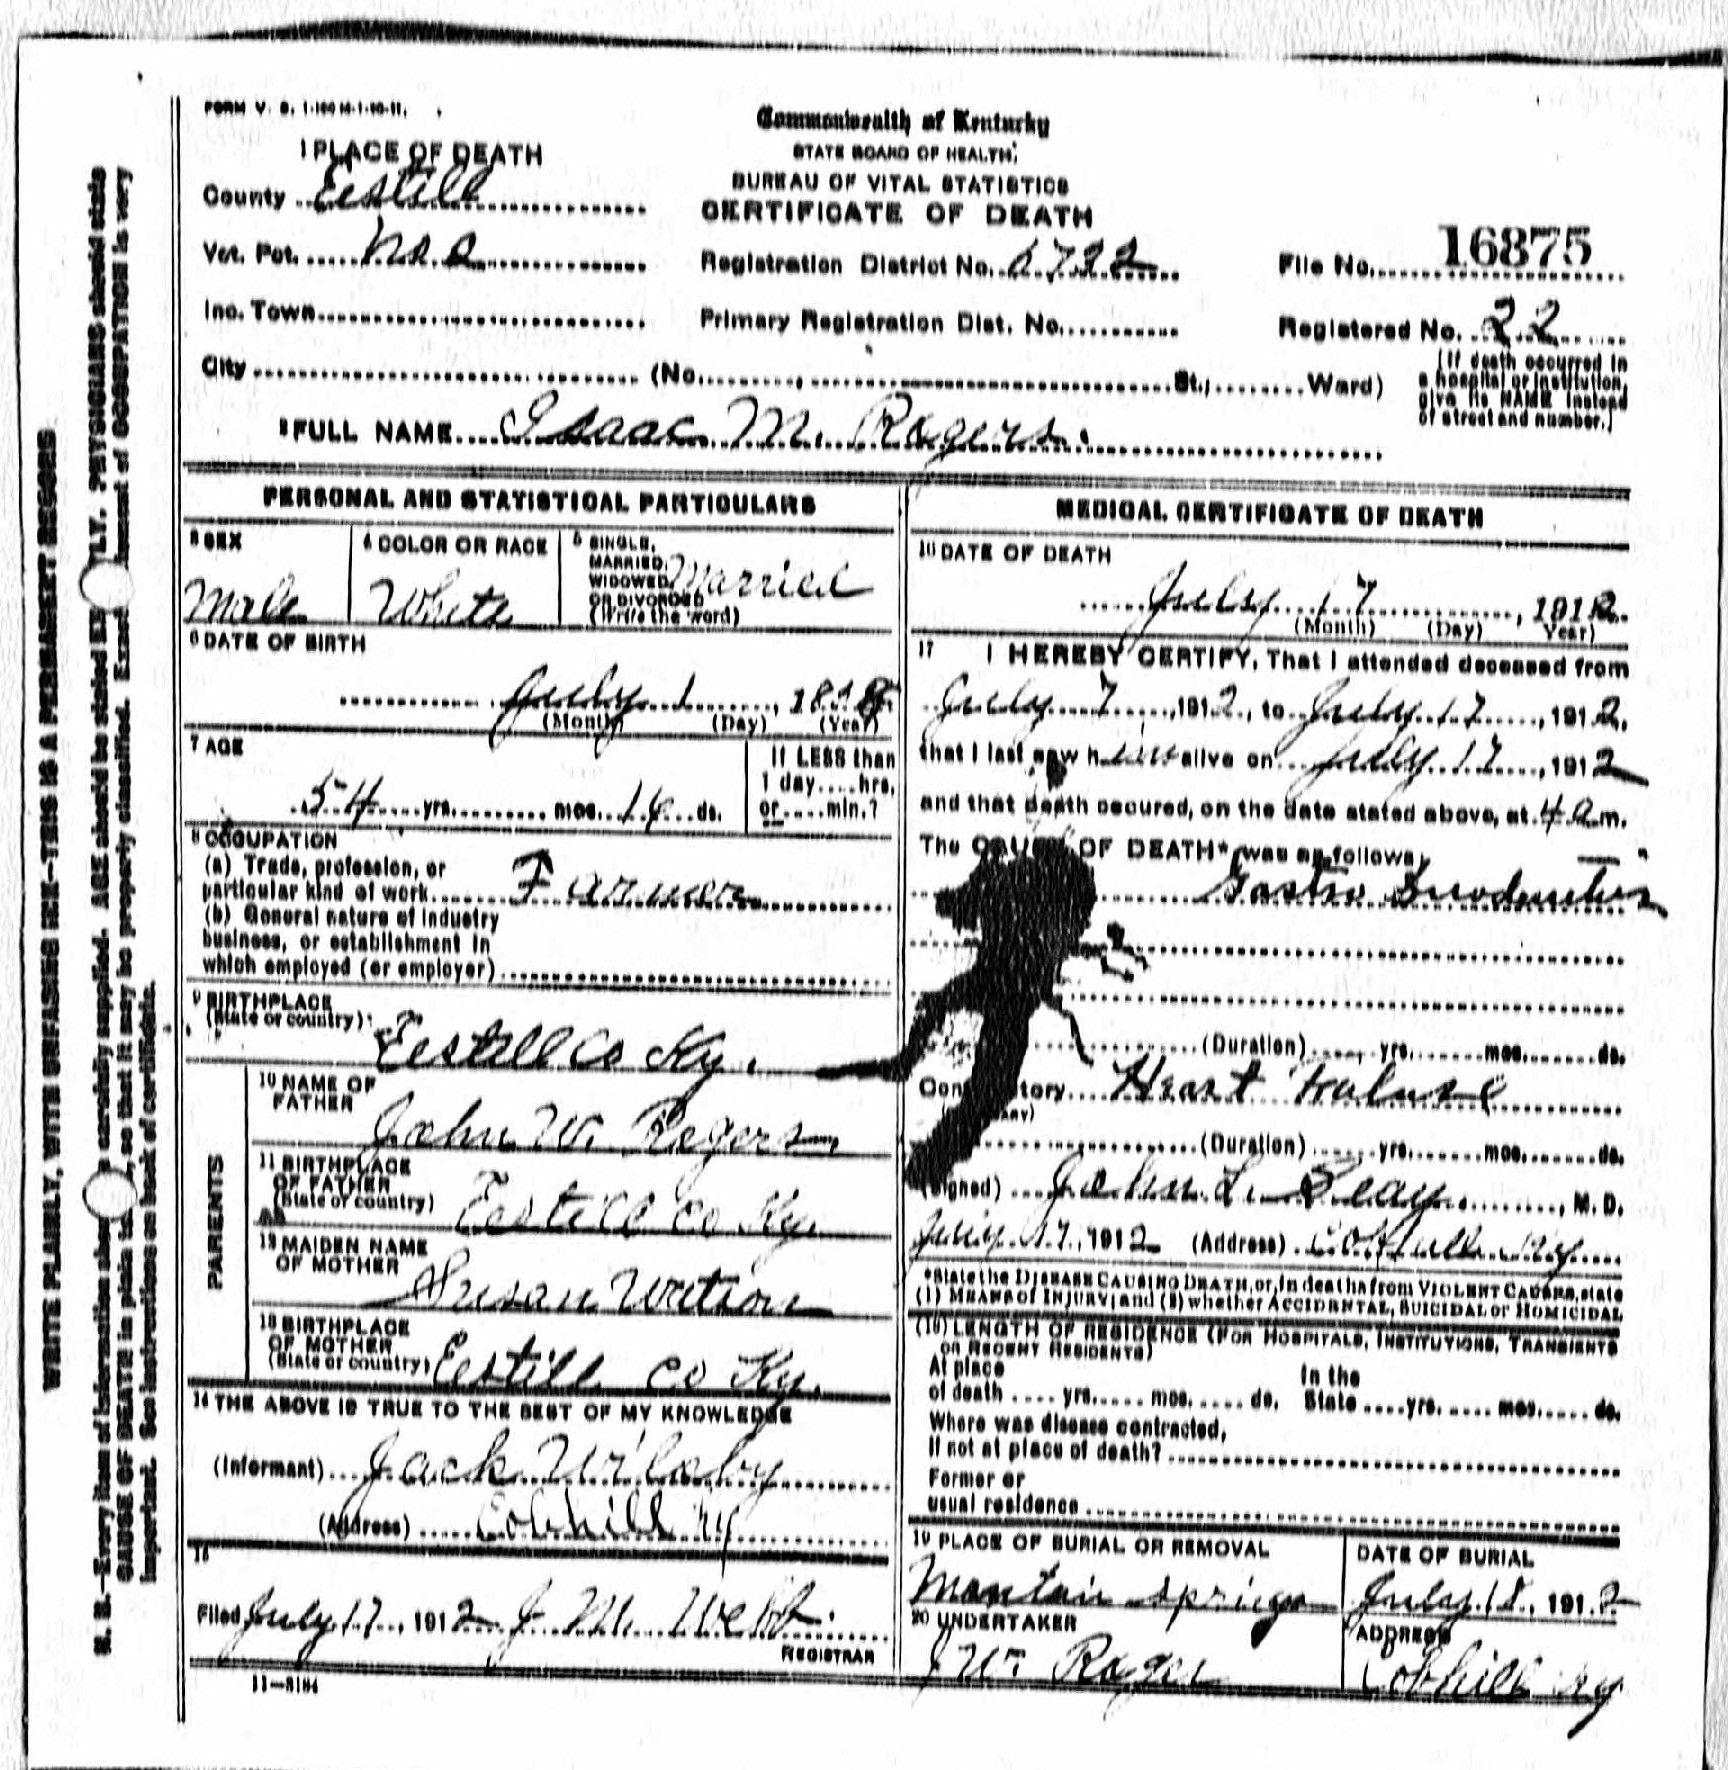 FORM V. S. 1-100 M-1-10-11.
Commonwealth of Kentucky
STATE BOARD OF HEALTH.
BUREAU OF VITAL STATISTICS
CERTIFICATE OF DEATH
1 PLACE OF DEATH
County Eestill
Vot. Pct. No 2
Registration District No. 6722
File No. 16875
Inc. Town
Primary Registration Dist. No.
Registered No. 22
City (No. St., Ward)
(If death occurred in
a hospital or institution,
give its NAME instead
of street and number.)
2 FULL NAME Isaac M. Rogers.
PERSONAL AND STATISTICAL PARTICULARS
3 SEX
Male
4 COLOR OR RACE
White
5 SINGLE,
MARRIED,
WIDOWED,
OR DIVORCED
(Write the word)
Married
6 DATE OF BIRTH
July 1, 1858
(Month) (Day) (Year)
7 AGE
54 yrs. mos. 16 ds.
If LESS than
1 day....hrs,
or....min.?
8 OCCUPATION
(a) Trade, profession, or
particular kind of work Farmer
(b) General nature of industry
business, or establishment in
which employed (or employer)
9 BIRTHPLACE
(State or country)
Eestill Co Ky.
PARENTS
10 NAME OF
FATHER
John W. Rogers
11 BIRTHPLACE
OF FATHER
(State or country)
Eestill co Ky.
12 MAIDEN NAME
OF MOTHER
Susan
13 BIRTHPLACE
OF MOTHER
(State or country)
Eestill co Ky.
14 THE ABOVE IS TRUE TO THE BEST OF MY KNOWLEDGE
(Informant) Jack
(Address) Cobhill Ky
15
Filed July 17, 1912 J. M. Webb.
REGISTRAR
11-3184
MEDICAL CERTIFICATE OF DEATH
16 DATE OF DEATH
July 17, 1912
(Month) (Day) Year)
17 I HEREBY CERTIFY, That I attended deceased from
July 7, 1912, to July 17, 1912,
that I last saw him alive on July 17, 1912
and that death occured, on the date stated above, at 4 a m.
The CAUSE OF DEATH* was as follows
Gastro
(Duration) yrs. mos. ds.
Contributory Heart Failure
(Duration) yrs. mos. ds.
(Signed) John L. Seay, M. D.
July 17, 1912 (Address) Cobhill Ky
*State the DISEASE CAUSING DEATH, or, in deaths from VIOLENT CAUSES, state
(1) MEANS OF INJURY; and (2) whether ACCIDENTAL, SUICIDAL or HOMICIDAL
(18) LENGTH OF RESIDENCE (FOR HOSPITALS, INSTITUTIONS, TRANSIENTS
OR RECENT RESIDENTS)
At place
of death yrs. mos. ds.
In the
State yrs. mos. ds.
Where was disease contracted,
If not at place of death?
Former or
usual residence
19 PLACE OF BURIAL OR REMOVAL
Montain Springs
DATE OF BURIAL
July 18, 1912
20 UNDERTAKER
J W Roger
ADDRESS
Cobhill Ky
WRITE PLAINLY, WITH UNFADING INK—THIS IS A PERMANENT RECORD
N. B.—Every item of information should be carefully supplied. AGE should be stated EXACTLY. PHYSICIANS should state
CAUSE OF DEATH in plain terms, so that it may be properly classified. Exact statement of OCCUPATION is very
important. See instructions on back of certificate.